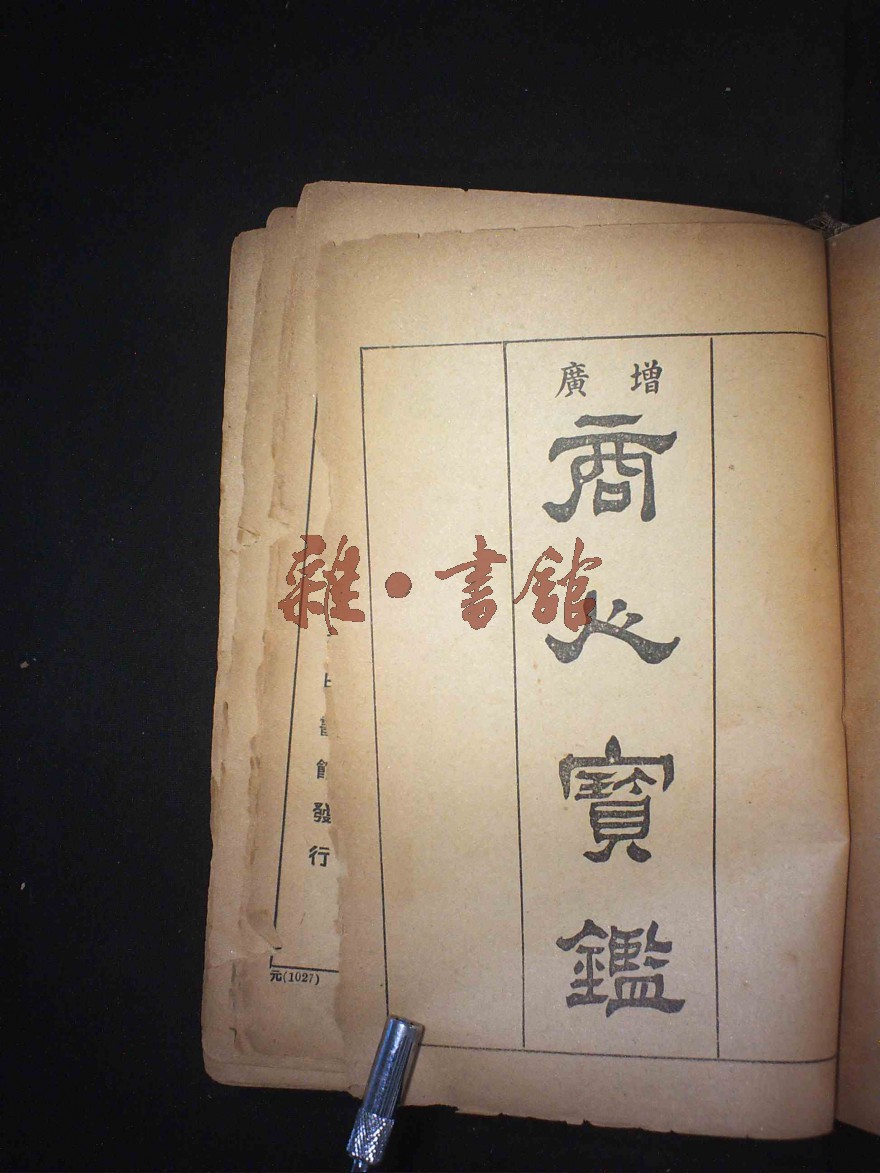 增廣
商人寶鑑
雜·書館
書館發行
元(1027)